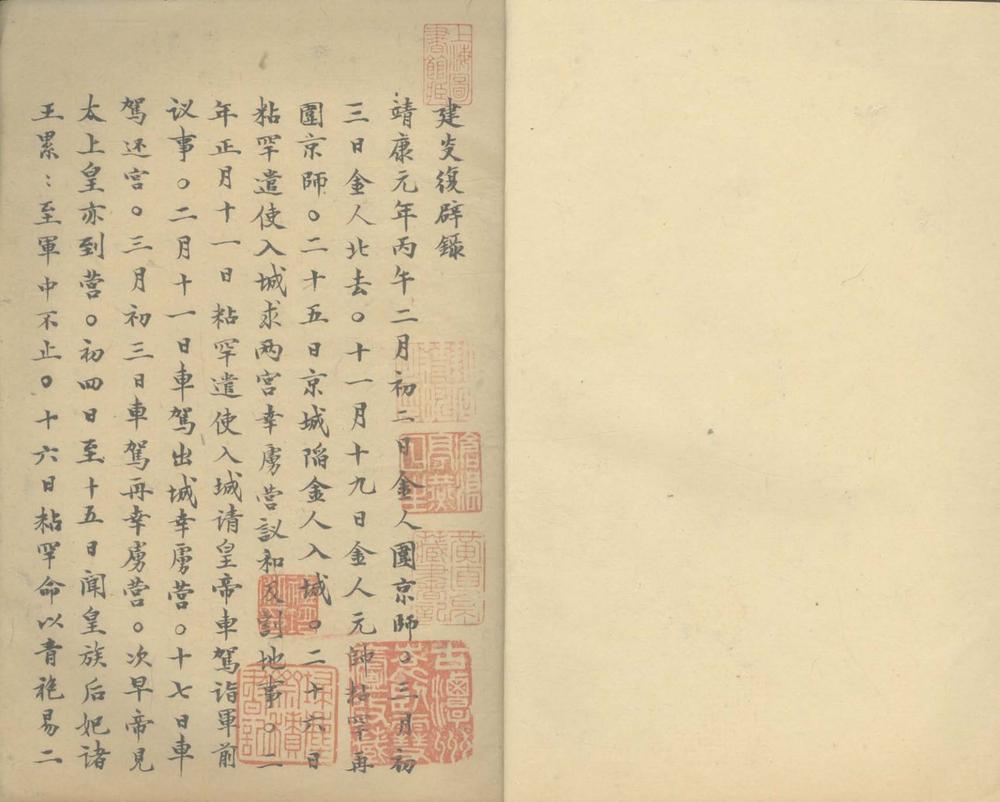 建炎復辟錄
靖康元年丙午二月初二日金人圍京師。三月初
三日金人北去。十一月十九日金人元帥粘罕再
圍京師。二十五日京城陷金人入城。二十六日
粘罕遣使入城求两宫幸虜营議和及割地事。二
年正月十一日粘罕遣使入城请皇帝車駕詣軍前
议事。二月十一日車駕出城幸虜营。十七日車
駕还宫。三月初三日車駕再幸虜营。次早帝見
太上皇亦到营。初四日至十五日闻皇族后妃诸
王累：至軍中不止。十六日粘罕命以青袍易二
上海圖書館藏